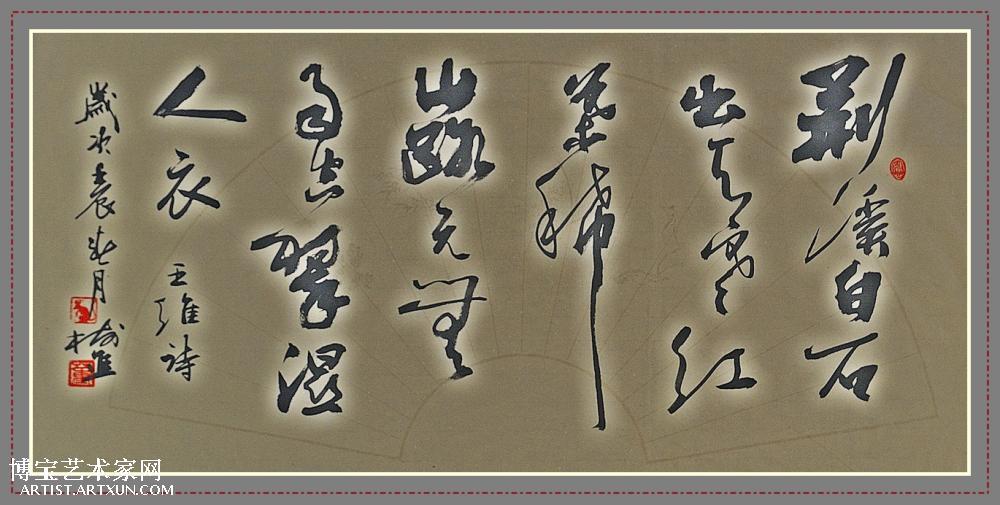 荆溪白石
出天寒红
葉稀
山路元無
雨空翠湿
人衣 王維詩
歲次壬辰春月
博宝艺术家网
ARTIST.ARTXUN.COM